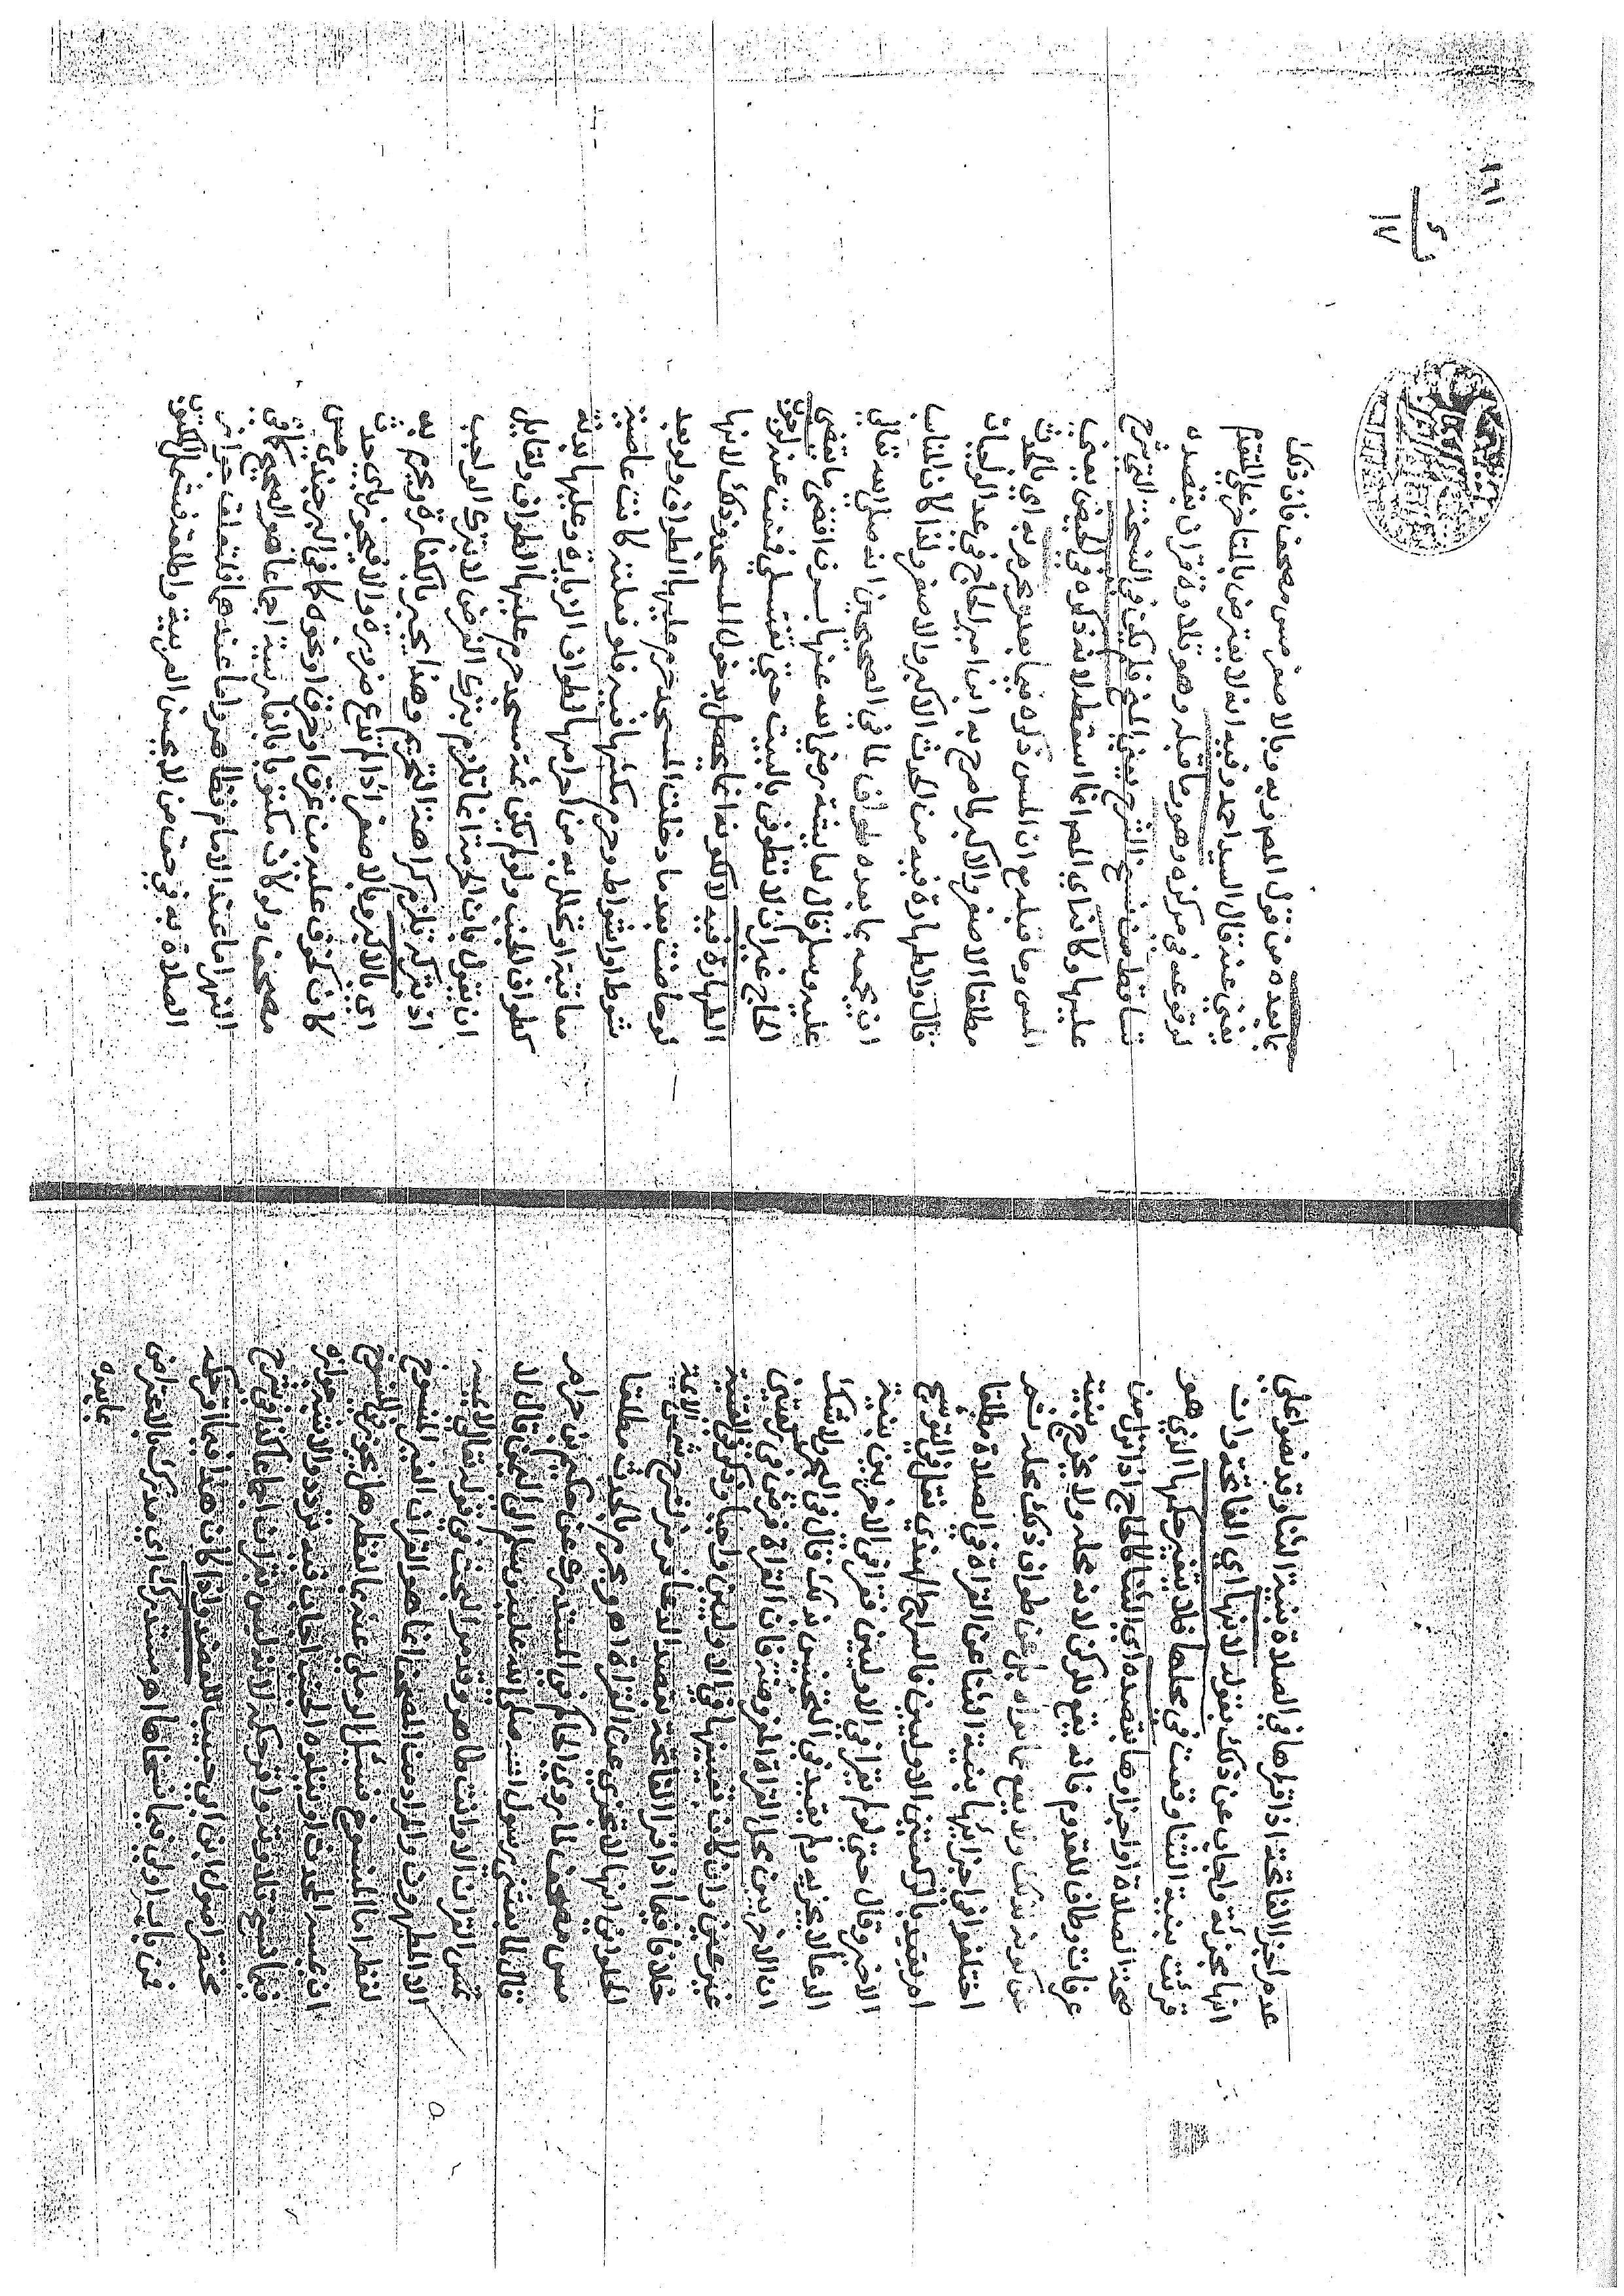 عدم اجزا الفاتحة اذا قراها في الصلاة بنية الثنا وقد نصوا على
انها مجزئة واجاب عن ذلك بقوله لانها اي الفاتحة وان
قرئت بنية الثنا وقعت في محلها فلا يتغير حكمها الذي هو
صحة الصلاة واجزاوها بقصده اي الثنا كالحاج اذا نزل من
عرفات وطاف للقدوم فانه يقع للركن لانه محله ولا يخرج بنية
عن كونه ولا يقع عما نواه بل عن طواف ذلك محله
اختلفوا في اجزائها بنية الثنا عن القراة في الصلاة مطلقا
ام بقيد بالركعتين الاوليين فالسراج الهندي نقل في التوشيح
الاخير وقال حتى لو لم يقرا في الاوليين فقرا في الاخريين بنية
الدعا لا يجزيه ولم يقيد في التجنيس بذلك قال في البحر ولا شك
ان الاخريين محل القراة المفروضة فان القراة فرض في ركعتين
غير عين وان كان تعيينها في الاوليين واجبا وذكر في القنية
خلافا فيما اذا قرا الفاتحة بقصد الدعا
الحلواني انها لا تجزي عن القراة اه ويحرم بالحدث مطلقا
مس مصحف لما روي الحاكم في المستدرك عن حكيم بن حزام
قال لما بعثني رسول الله صلى الله عليه وسلم الى اليمن قال لا
تمس القران الا وانت طاهر وقدمر البحث في قوله تعالى لا يمسه
الا المطهرون والمراد من المصحف انما هو القران الغير المنسوخ
لفظه اما المنسوخ فسئل الرملي عنه بما لفظه هل يجوز في المنسوخ
ان يمسه المحدث او يتلوه الجنب اجاب فيه تردد والاشبه جوازه
فيما نسخ تلاوته واقر حكمه لانه ليس بقران اجماعا كذا في شرح
مختصر اصول ابن الحاجب للعضد واذا كان هذا فيما اقر حكمه
فمن باب اولى فيما نسخا معا اه مستدرك اي يدرك بالاعتراض
بما بعده
١٦١
عليه بما بعده من قول المصه وبه وبالاصغر مس مصحف فان ذلك
يغني عنه قال السيد احمد وفيه انه لا يعترض بالمتاخر على المتقدم
لوقوعه في مركزه وهو وما قبله وهو تلاوة قران بقصده
ساقط من نسخ الشرح يعني المنح فلم يكن في النسخة التي شرح
عليها وكانه اي المصه انما اسقطه لانه ذكره في الحيض يعني
المس وما قبله مع ان المس ذكره فيما بعد ويحرم به اي بالحدث
مطلقا الاصغر والاكبر كما صرح به ابن امير الحاج في عد الواجبات
قال والطهارة فيه من الحدث الاكبر والاصغر ولذا كان المناسب
ان يجمعه بما بعده طواف لما في الصحيحين انه صلى الله تعالى
عليه وسلم قال لعايشة رضي الله عنها لما حاضت بسرف اقضي ما يقضي
الحاج غير ان لا تطوفي بالبيت حتى تغتسلي
الطهارة فيه لا لكونه انما يحصل بدخول المسجد وذلك لانها
لو حاضت بعد ما دخلت المسجد حرم عليها الطواف ولو بعد
شوط او اشواط وحرم مكثها فيه فلو فعلته كانت عاصية
معاقبة وتحلل به من احرامها لطواف الزيارة وعليها بدنة
كطواف الجنب ولو لم يكن ثمة مسجد حرم عليها الطواف ولقايل
ان يقول بان الحرمة انما تلزم بترك الفرض لا بترك الواجب
اذ بتركه تلزم كراهة التحريم وهذا يجبر بالكفارة ويحرم به
اي بالاكبر وبالاصغر اذا لم تدع ضرورة والا فيجوز باي حدث
كان كخوف عليه من غرق او حرق او نحوه كما في البرجندي مس
مصحف ولو كان مكتوبا بالفارسية اجماعا هو الصحيح كما في
النهر اما عند الامام فظاهر واما عندهما فلتعلق جواز
الصلاة به في حق من لا يحسن العربية واطلقه فشمل المكتوب